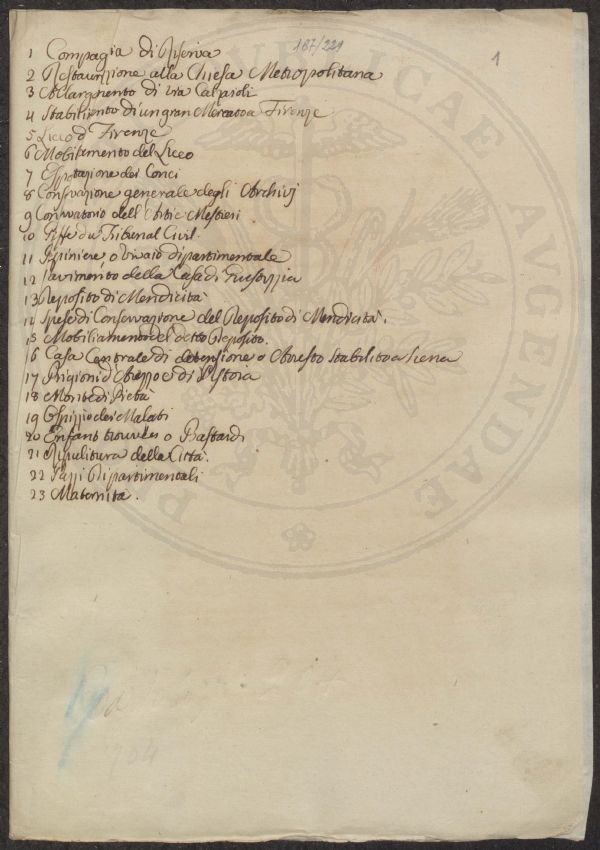 187/221
1
1 Compagia di Riserva
2 Restaurazione alla Chiesa Metropolitana
3 di via Calzaioli
4 Stabilimento di un gran Mercato a Firenze
5 Liceo d Firenze
6 Mobiliamento del Liceo
7 dei Conci
8 Conservazione generale degli Archivj
9 Conservatorio dell Arti e Mestieri
10 Tribunal Civil.
11 Pepiniere o Vivaio dipartimentale
12 Pavimento della Casa di
13 Reposito di Mendicità
14 Spese di Conservazione del Reposito di Mendicità.
15 Mobiliamento del detto Reposito.
16 Casa Centrale di detensione o Arresto stabilito a Siena
17 Prigioni d'Arezzo e di Pistoia
18 Monte di Pietà
19 Ospizio dei Malati
20 Enfants trouvées o Bastardi
21 Ripulitura della Città.
22 Pazzi Dipartimentali
23 Maternità.
PUBLICAE AUGENDAE